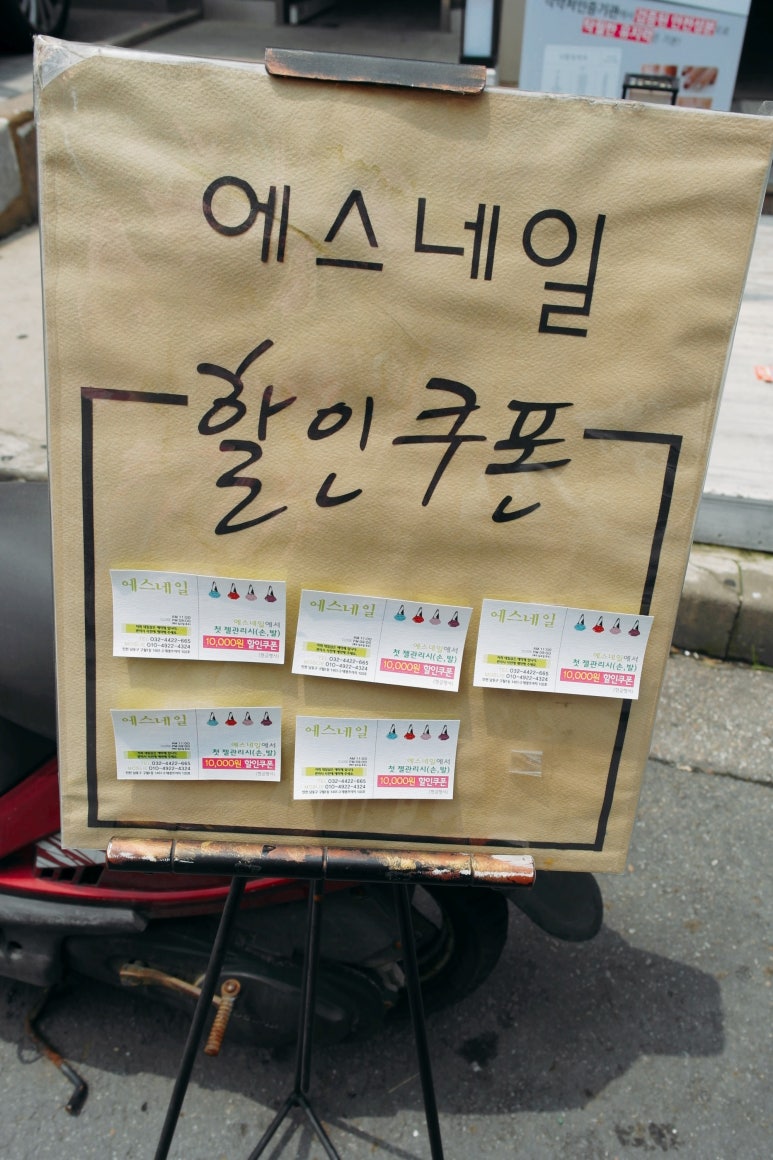 작품만 정직한
에스네일
할인쿠폰
에스네일
에스네일에서
첫 젤관리시(손,발)
10,000원 할인쿠폰
(현금행사)
032-4422-665
010-4922-4324
에스네일
에스네일에서
첫 젤관리시(손,발)
10,000원 할인쿠폰
(현금행사)
032-4422-665
010-4922-4324
에스네일
에스네일에서
첫 젤관리시(손,발)
10,000원 할인쿠폰
(현금행사)
032-4422-665
010-4922-4324
에스네일
에스네일에서
첫 젤관리시(손,발)
10,000원 할인쿠폰
032-4422-665
010-4922-4324
에스네일
에스네일에서
첫 젤관리시(손,발)
10,000원 할인쿠폰
(현금행사)
032-4422-665
010-4922-4324